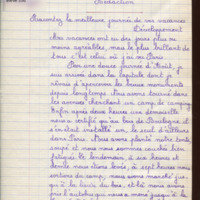 Rédaction
Racontez la meilleure journée de vos vacances
Développement
Mes vacances ont eu des jours plus ou
moins agréables, mais le plus brillant de
tous c'est celui où j'ai vu Paris.
Par une douce journée d'Août, je
suis arrivée dans la capitale dont je
rêvais d'apercevoir les beaux monuments
depuis longtemps. Nous avons tourné dans
les avenues cherchant un camp de camping
Enfin après deux heures une demoiselle
nous a certifié qu'au bois de Boulogne il
s'en était installé un, le seul d'ailleurs
dans Paris. Nous avons planté notre tente,
soupé et nous nous sommes couchés bien
fatigués. Le lendemain, à six heures et
demie nous étions levés, à sept heures nous
sortions du camp, nous avons marché jus-
qu'à la du bois, et là nous avons
pris l'autobus qui nous a menés jusqu'à